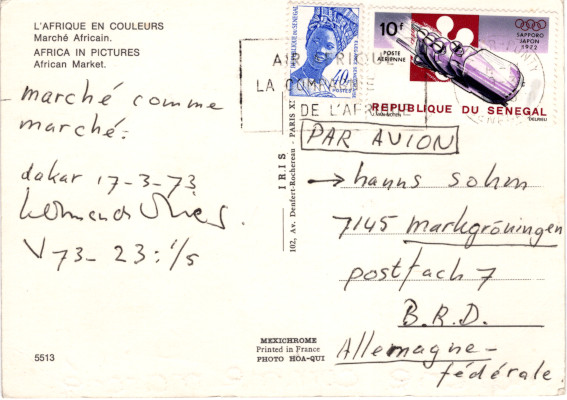 L'AFRIQUE EN COULEURS
Marché Africain.
AFRICA IN PICTURES
African Market.
marché comme
marché.
dakar 17-3-73
V 73- 23: 1/5
5513
IRIS
102, Av. Denfert-Rochereau - PARIS
MEXICHROME
Printed in France
PHOTO HOA-QUI
REPUBLIQUE DU SENEGAL
40f
POSTES
10f
POSTE
AERIENNE
SAPPORO
JAPON
1972
REPUBLIQUE DU SENEGAL
DELRIEU
AIR AFRIQUE
LA
DE L'AFRIQUE
PAR AVION
→ hanns sohm
7145 markgröningen
postfach 7
B.R.D.
Allemagne-
fédérale.